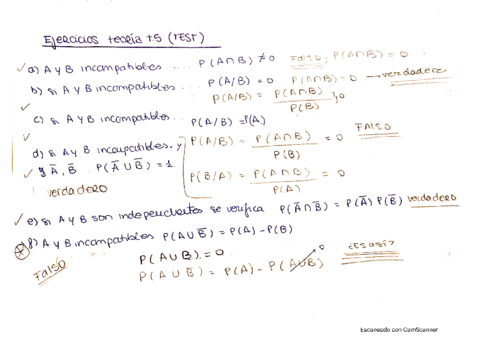 Ejercicios teoría t5 (TEST)
a) A y B incompatibles .... P(A∩B) ≠ 0 FALSO, P(A∩B) = 0
b) si A y B incompatibles ... P(A/B) = 0 P(A∩B) = 0 → verdadero
P(A/B) = P(A∩B) / P(B) 0
c) si A y B incompatibles... P(A/B) = P(A)
P(A/B) = P(A∩B) / P(B) = 0 FALSO
P(B/A) = P(A∩B) / P(A) = 0
d) si A y B incompatibles, y
y A̅, B̅ P(A̅ ∪ B̅) = 1.
verdadero
e) si A y B son independientes se verifica P(A̅∩B̅) = P(A̅) P(B̅) verdadero
f) A y B incompatibles P(A∪B̅) = P(A) - P(B)
P(A∪B) = 0
FALSO P(A∪B̅) = P(A) - P(A∪B) 0 ¿ES ASÍ?
Escaneado con CamScanner